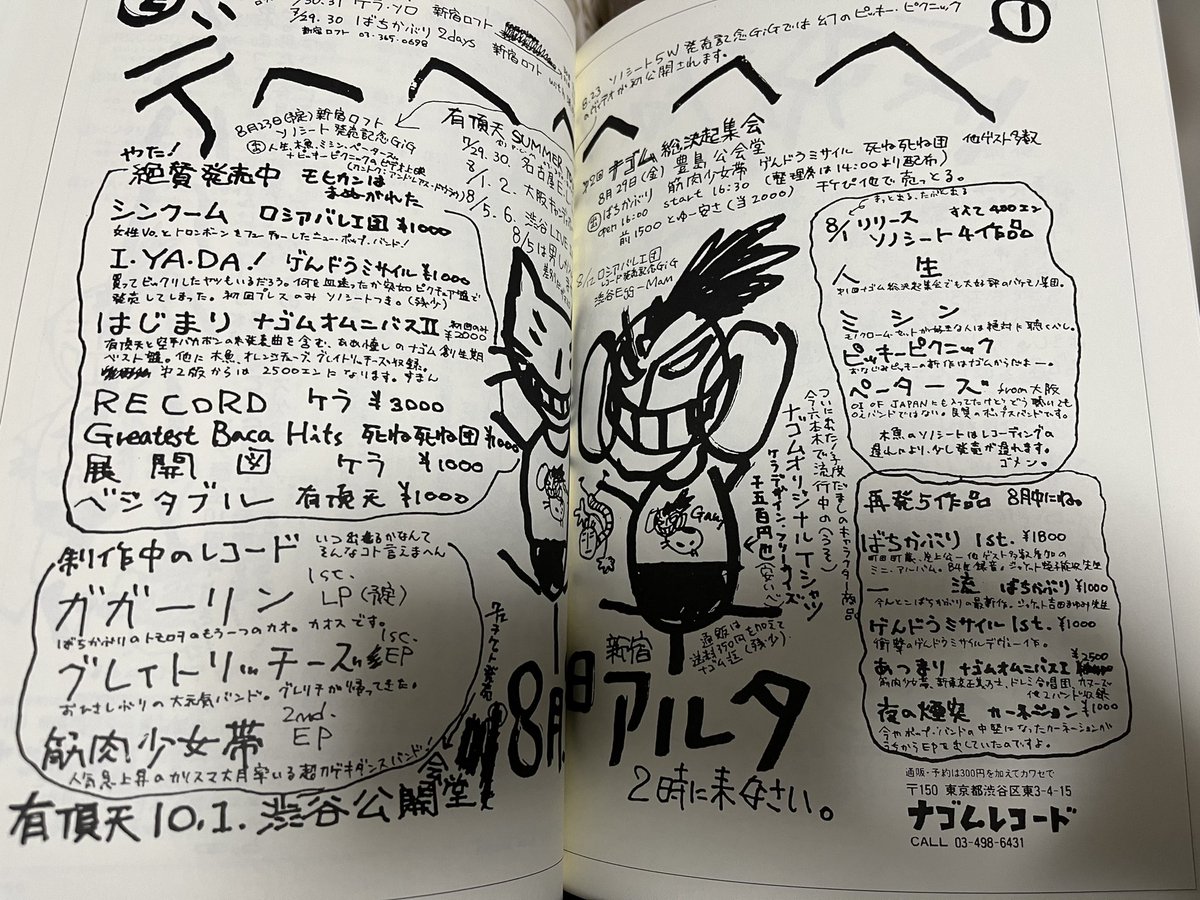 新宿ロフト
7/29.30 ばちかぶり 2days
新宿ロフト 03-365-0698
新宿ロフト
デヘヘ
8月23日(土)新宿ロフト
ソノシート発売記念GiG
有頂天 SUMMER
7/29.30. 名古屋
8/1.2. 大阪
8/5.6. 渋谷LIVE
8/5は男
やた!
絶賛発売中 モヒカンは
まぬがれた
シンクーム ロシアバレエ団 ¥1000
女性Vo.とトロンボーンをフューチャーしたニュー・ポップ・バンド!
I・YA・DA! げんドうミサイル ¥1000
買ってビックリしたヤツもいるだろう。何を血迷ったか突如ピクチュア盤で
発売してしまった。初回プレスのみ ソノシートつき。(残少)
はじまり ナゴムオムニバスII 初回のみ¥2000
有頂天と空手バカボンの未発表曲を含む、ナゴム創生期
ベスト盤。他に木魚、オレンジチューブ、グレイトリッチーズ収録。
第2版からは 2500エンになります。すまん
RECORD ケラ ¥3000
Greatest Baca Hits 死ね死ね団 ¥1000
展開図 ケラ ¥1000
ベジタブル 有頂天 ¥1000
制作中のレコード いつ出るかなんて
そんなコト言えまへん
ガガーリン 1st. LP(予定)
ばちかぶりのトモロヲのもう一つのカオ。カオスです。
グレイトリッチーズ 1st. EP
おひさしぶりの大元気バンド。グレリチが帰ってきた。
筋肉少女帯 2nd. EP
人気急上昇のカリスマ大月率いる超カゲキダンスバンド!
有頂天 10.1. 渋谷公会堂
①
8.23 ソノシート5W発売記念GiGでは幻のピッキー・ピクニック
のヴィデオが初公開されます。
ヘヘヘ
第2回 ナゴム総決起集会
8月29日(金) 豊島公会堂
出 ばちかぶり 筋肉少女帯 げんドうミサイル 死ね死ね団 他ゲスト多数
open 16:00 start 16:30 (整理券は14:00より配布)
前1500とゆー安さ(当2000) チケぴ他で売っとる。
8/12 ロシアバレエ団
レコード発売記念GiG
渋谷Egg-Man
ついに出た!子供だましのキャラクター商品。
今、六本木で流行中の(うそ)
ナゴムオリジナルTシャツ
ケラデザイン、フリーサイズ
千五百円也(安いべ)
通販は
送料350円も加えて
ナゴム迄(残少)
新宿
8月 日 アルタ
2時に来なさい。
8/1 リリース すべて400エン
ソノシート4作品
人生
ミシン
モノクローム・セットが好きな人は絶対に聴くべし。
ピッキーピクニック
おなじみピッキーの新作はナゴムからだよー。
ペーターズ from大阪
OZ OF JAPANにも入ってたけど、どう聴いても
OZバンドではない。良質のポップスバンドです。
木魚のソノシートはレコーディングの
遅れにより、少し発売が遅れます。
ゴメン。
再発5作品 8月中にね。
ばちかぶり 1st. ¥1800
一流 ばちかぶり ¥1000
げんドうミサイル 1st. ¥1000
衝撃のげんドうミサイルデヴュー作。
あつまり ナゴムオムニバスI ¥2500
他2バンド収録
夜の煙突 カーネーション ¥1000
今やポップ・バンドの中堅になったカーネーションが
うちからEPを出していたのですよ。
通販・予約は300円を加えてカワセで
〒150 東京都渋谷区東3-4-15
ナゴムレコード
CALL 03-498-6431